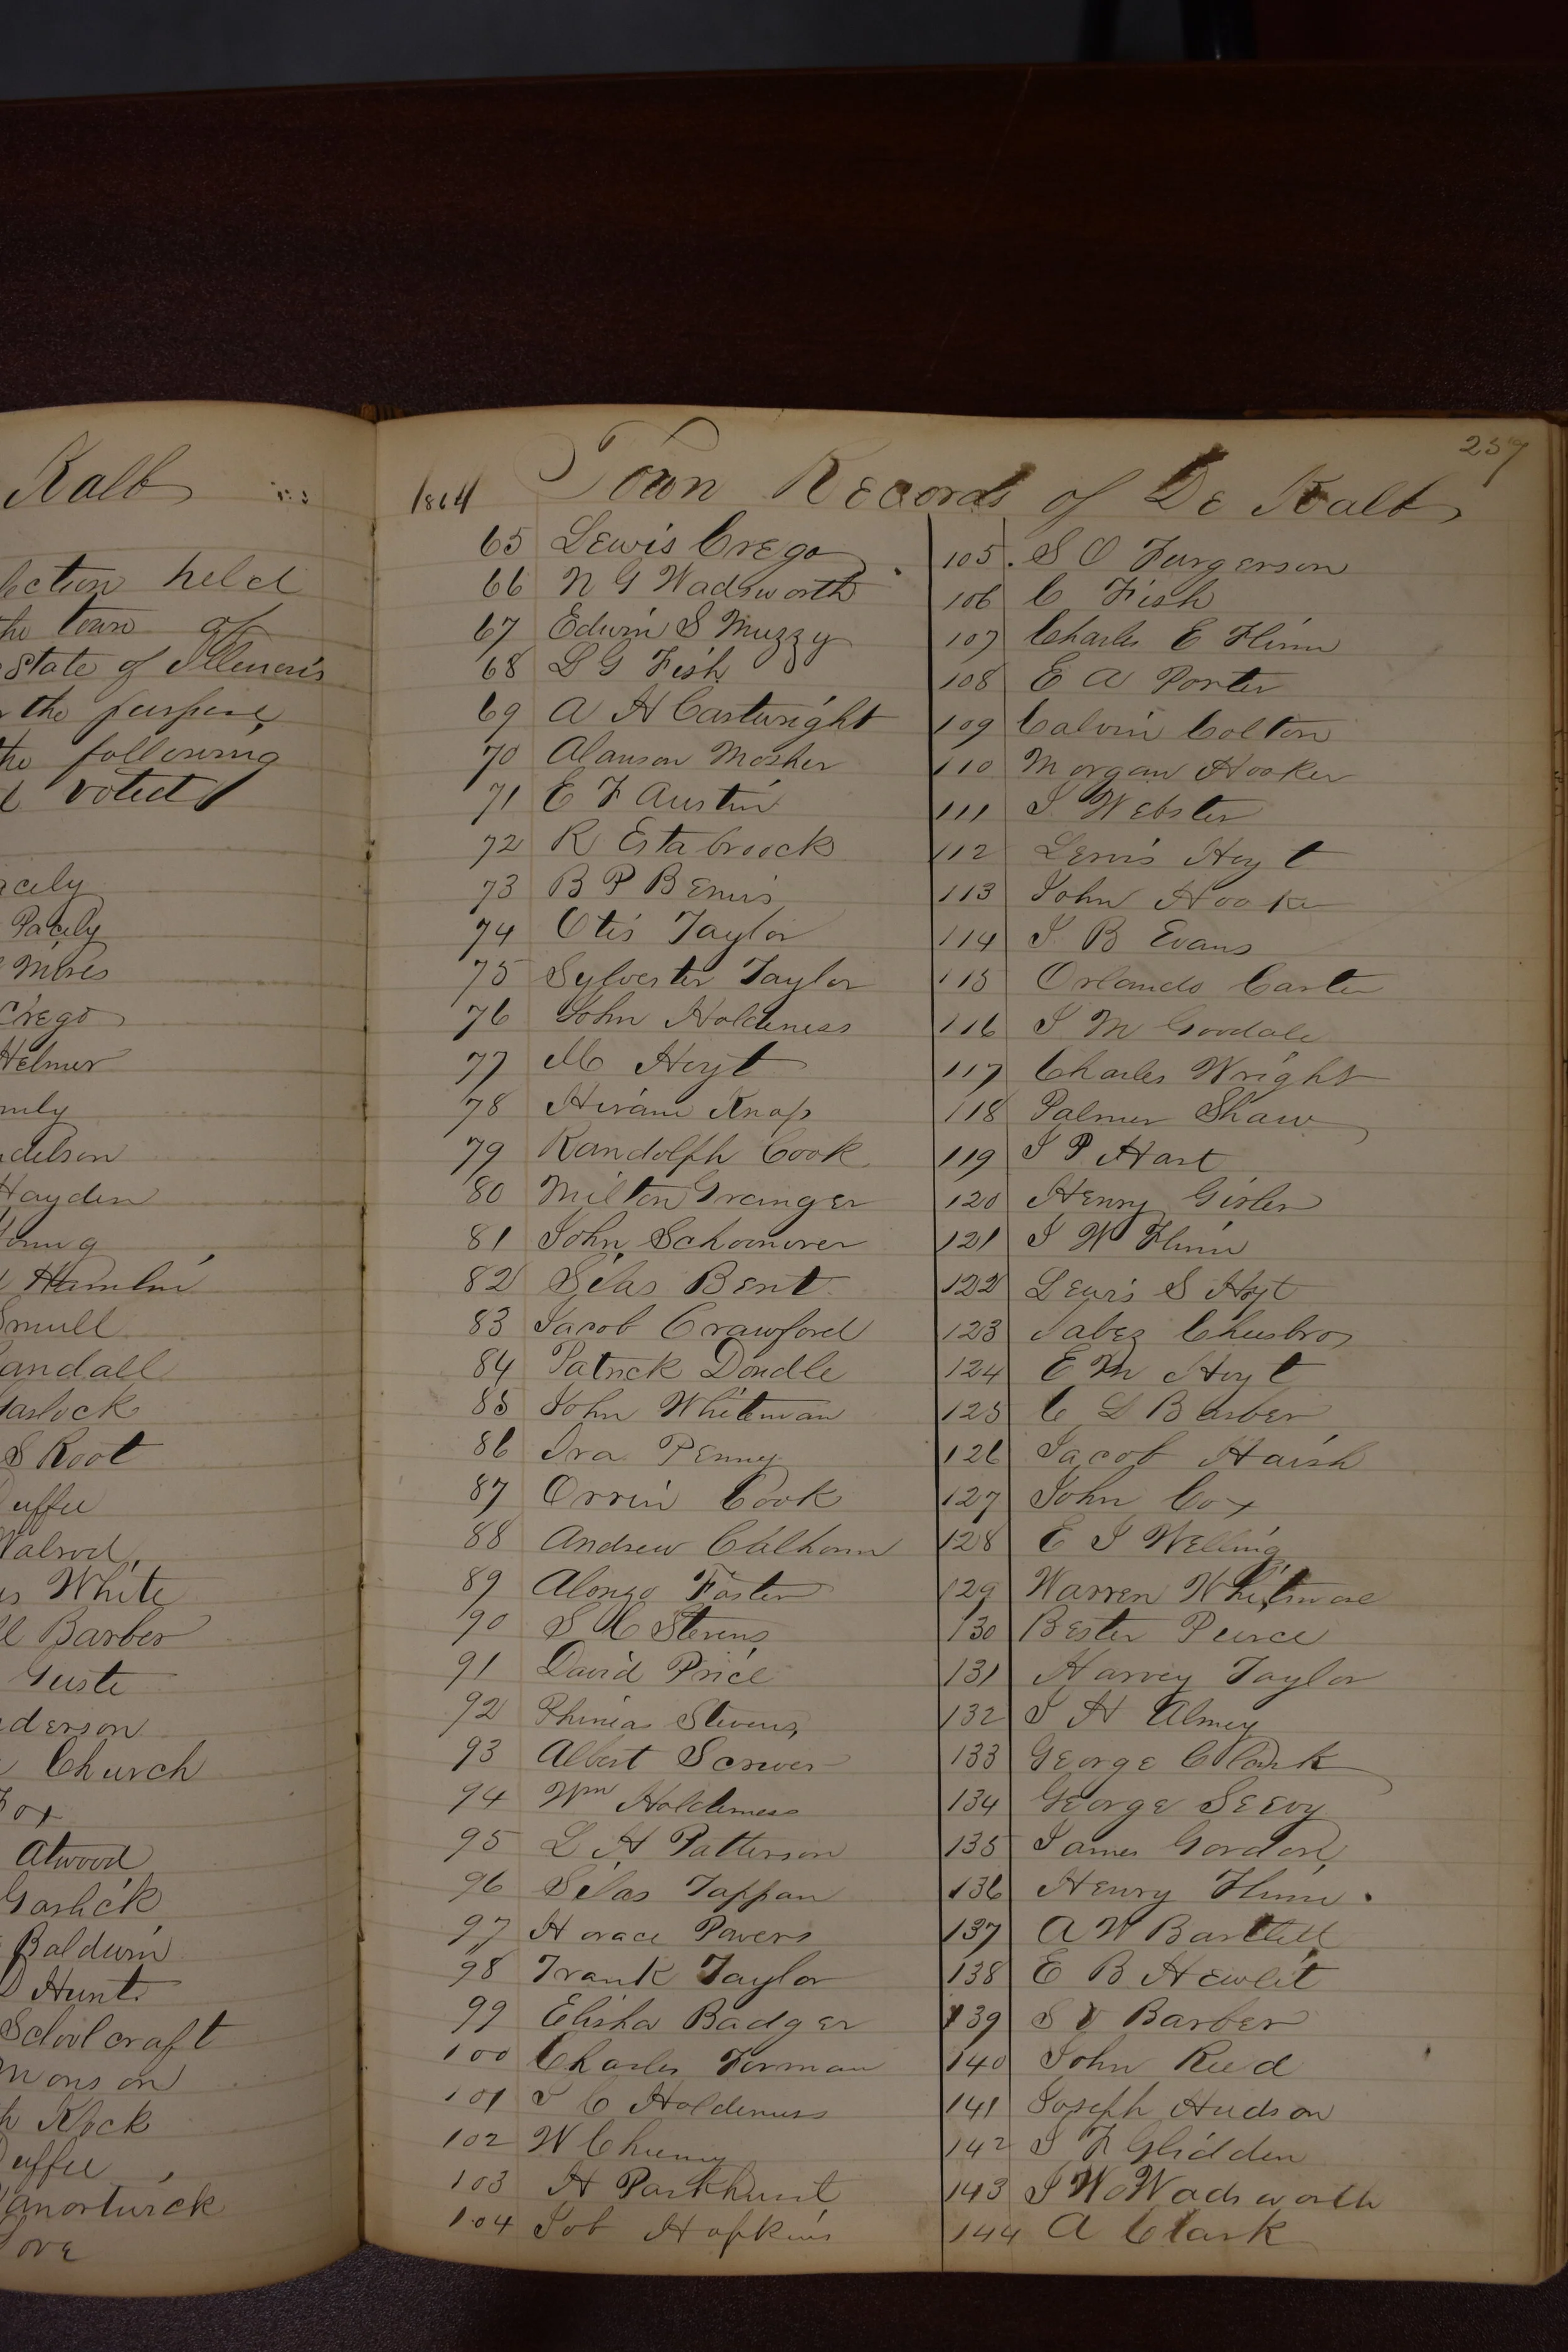 Kalb
ection held
the town of
State of Illenois
the purpose
the following
voted
Pacely
Mires
Crego
Helmer
Hayden
Young
Hamlin
andall
Garlock
S Root
Duffee
Walrod
White
Barber
derson
Church
Fox
Atwood
Garlick
Baldwin
Hunt
Schoolcraft
Monson
Klock
Duffee
Vanortwick
ove
257
1864 Town Records of De Kalb
65 Lewis Crego
66 N G Wadsworth
67 Edwin S Muzzy
68 L G Fish
69 A H Cartwright
70 Alanson Mosher
71 E F Austin
72 R Estabroock
73 B P Bemis
74 Otis Taylor
75 Sylvester Taylor
76 John Holderness
77 M Hoyt
78 Hiram Knap
79 Randolph Cook
80 Milton Granger
81 John Schoonover
82 Silas Bent
83 Jacob Crawford
84 Patrick Dondle
85 John Whiteman
86 Ira Penny
87 Orrin Cook
88 Andrew Calhoun
89 Alonzo Foster
90 S C Stevens
91 David Price
92 Phinias Stevens
93 Albert Scrwer
94 Wm Holderness
95 L H Patterson
96 Silas Tappan
97 Horace Powers
98 Frank Taylor
99 Elisha Badger
100 Charles Forman
101 J C Holderness
102 W
103 H Parkhurst
104 Job Hopkins
105 S O Furgerson
106 C Fish
107 Charles E Flinn
108 E A Porter
109 Calvin Colton
110 Morgan Hooker
111 J Webster
112 Lewis Hoyt
113 John Hooker
114 J B Evans
115 Orlando Carter
116 J M Goodale
117 Charles Wright
118 Palmer Shaw
119 J P Hart
120 Henry Gisler
121 J W Flinn
122 Lewis S Hoyt
123 Jabez Cheesbro
124 E M Hoyt
125 C L Barber
126 Jacob Haish
127 John Cox
128 E J Welling
129 Warren Whitmore
130 Bester Peirce
131 Harvey Taylor
132 J H Almey
133 George Clark
134 George Seevy
135 James Gordon
136 Henry Flinn
137 A W Bartlett
138 E B Hewlit
139 S V Barber
140 John Reed
141 Joseph Hudson
142 J F Glidden
143 J W Wadsworth
144 A Clark